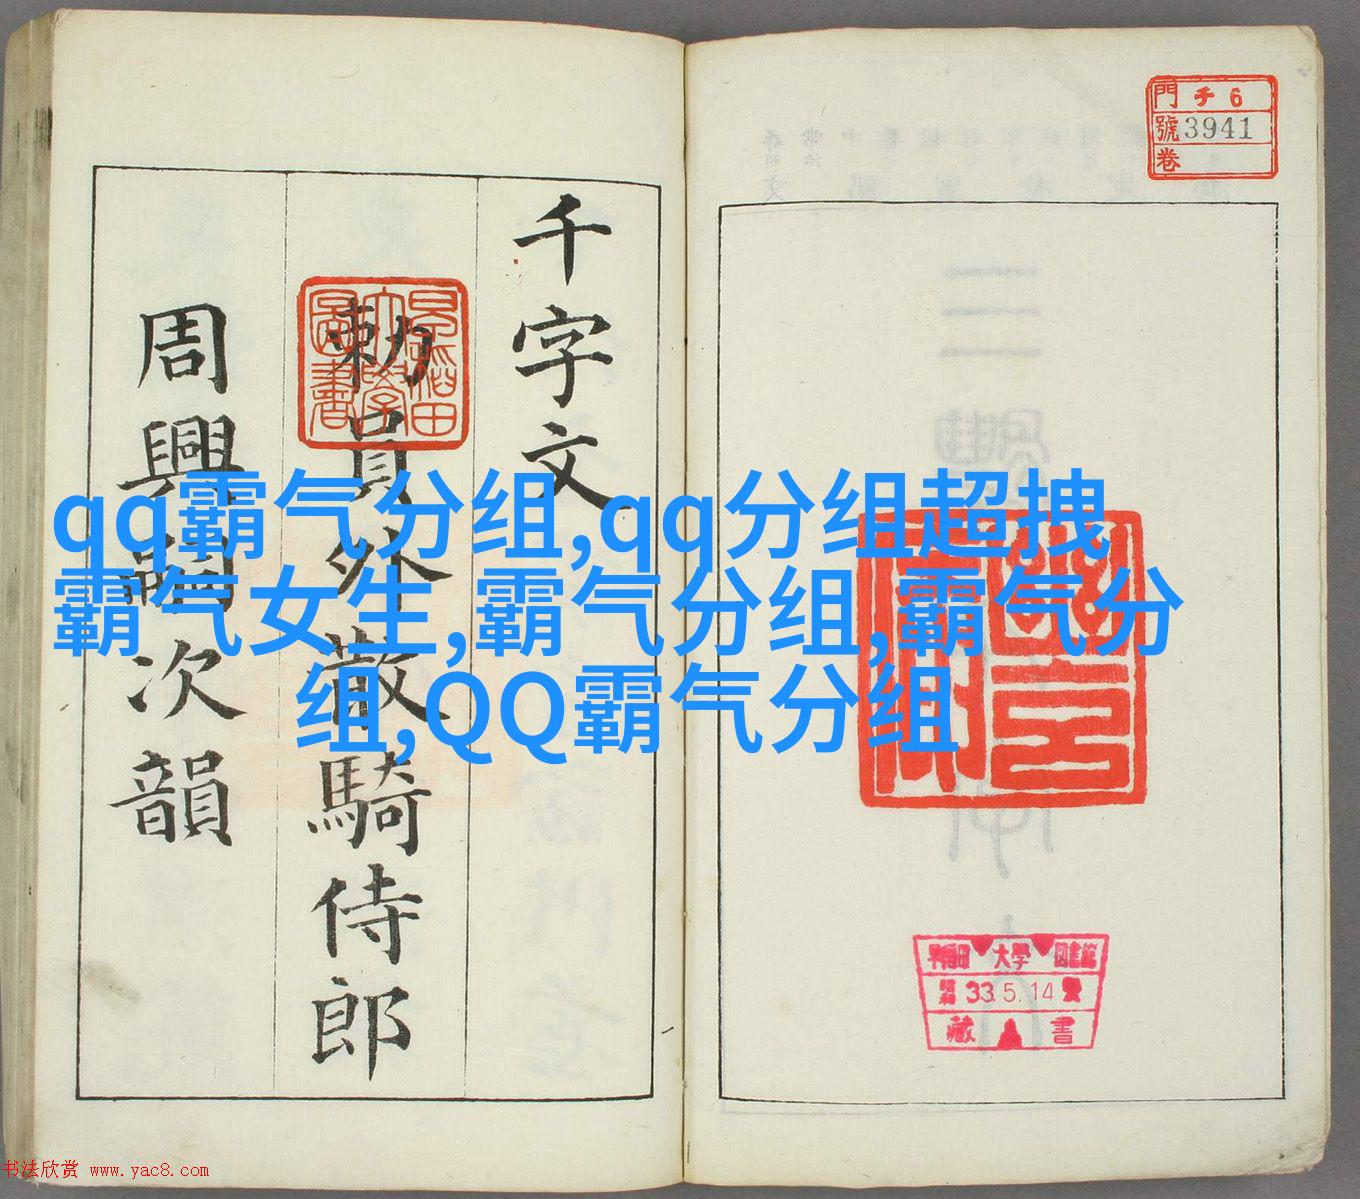 門 チ 6
號 3941
卷
千字文
勅員外散騎侍郎
周興嗣次韻
早稲田大學圖書
qq霸气分组,qq分组超拽
霸气女生,霸气分组,霸气分
组,QQ霸气分组
早稲田 大學 図書館
33.5.14
藏 書
书法欣赏 www.yac8.com